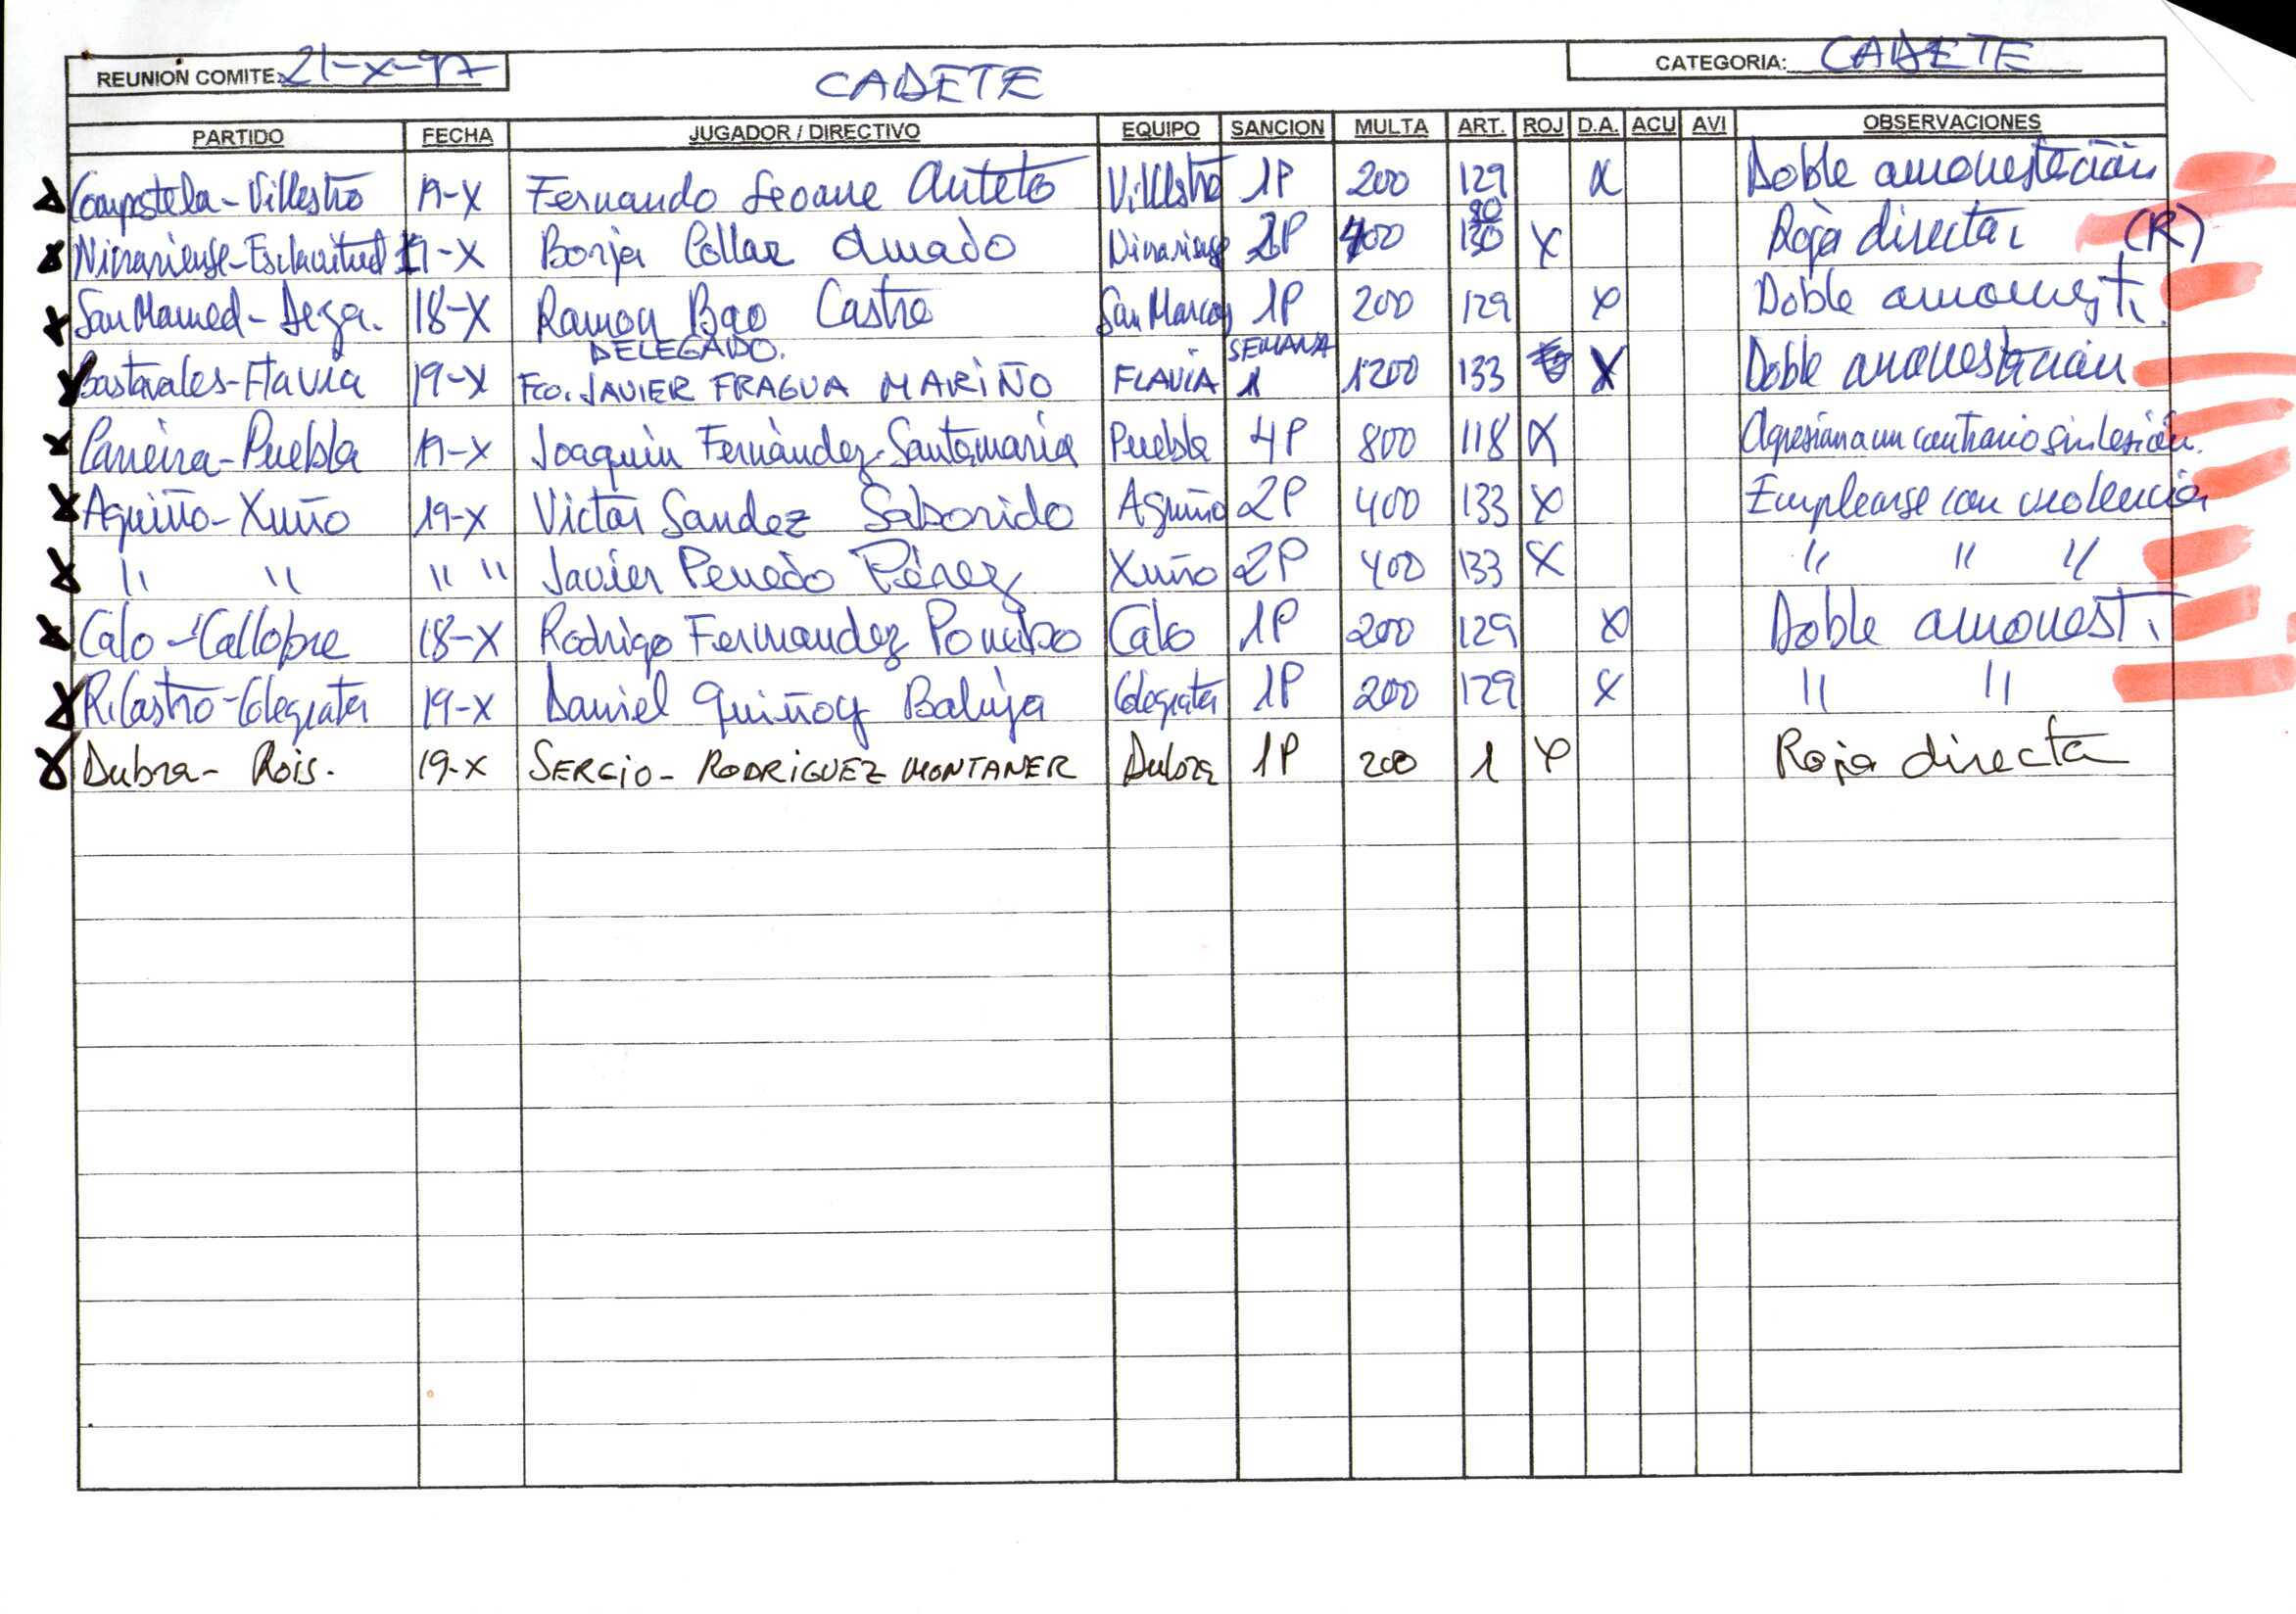 REUNIÓN COMITE: 21-X-97 CADETE CATEGORIA: CADETE
PARTIDO FECHA JUGADOR / DIRECTIVO EQUIPO SANCION MULTA ART. ROJ D.A. ACU AVI OBSERVACIONES
Compostela-Villestro 19-X Fernando Seoane Villestro 1P 200 129 X Doble amonestación
-Esclavitud 19-X Borja Collar Amado 2P 400 X Roja directa (R)
San Mamed-Deza. 18-X Ramon Bao Castro San Marcos 1P 200 129 X Doble amonest.
DELEGADO. SEMANA
Bastavales-Flavia 19-X Fco. JAVIER FRAGUA MARIÑO FLAVIA 1 1200 133 X Doble amonestación
Carreira-Puebla 19-X Joaquín Fernández-Santamaria Puebla 4P 800 118 X Agresion a un contrario sin lesión.
Aguiño-Xuño 19-X Victor Sandez Saborido Aguiño 2P 400 133 X Emplearse con violencia
" " " " Javier Penedo Pérez Xuño 2P 400 133 X " " "
Calo-Callobre 18-X Rodrigo Fernandez Pombo Calo 1P 200 129 X Doble amonest.
R.Castro-Colegiata 19-X Daniel Quiñoy Baluja Colegiata 1P 200 129 X " "
Dubra- Rois. 19-X SERGIO- RODRIGUEZ MONTANER Dubra 1P 200 1 X Roja directa